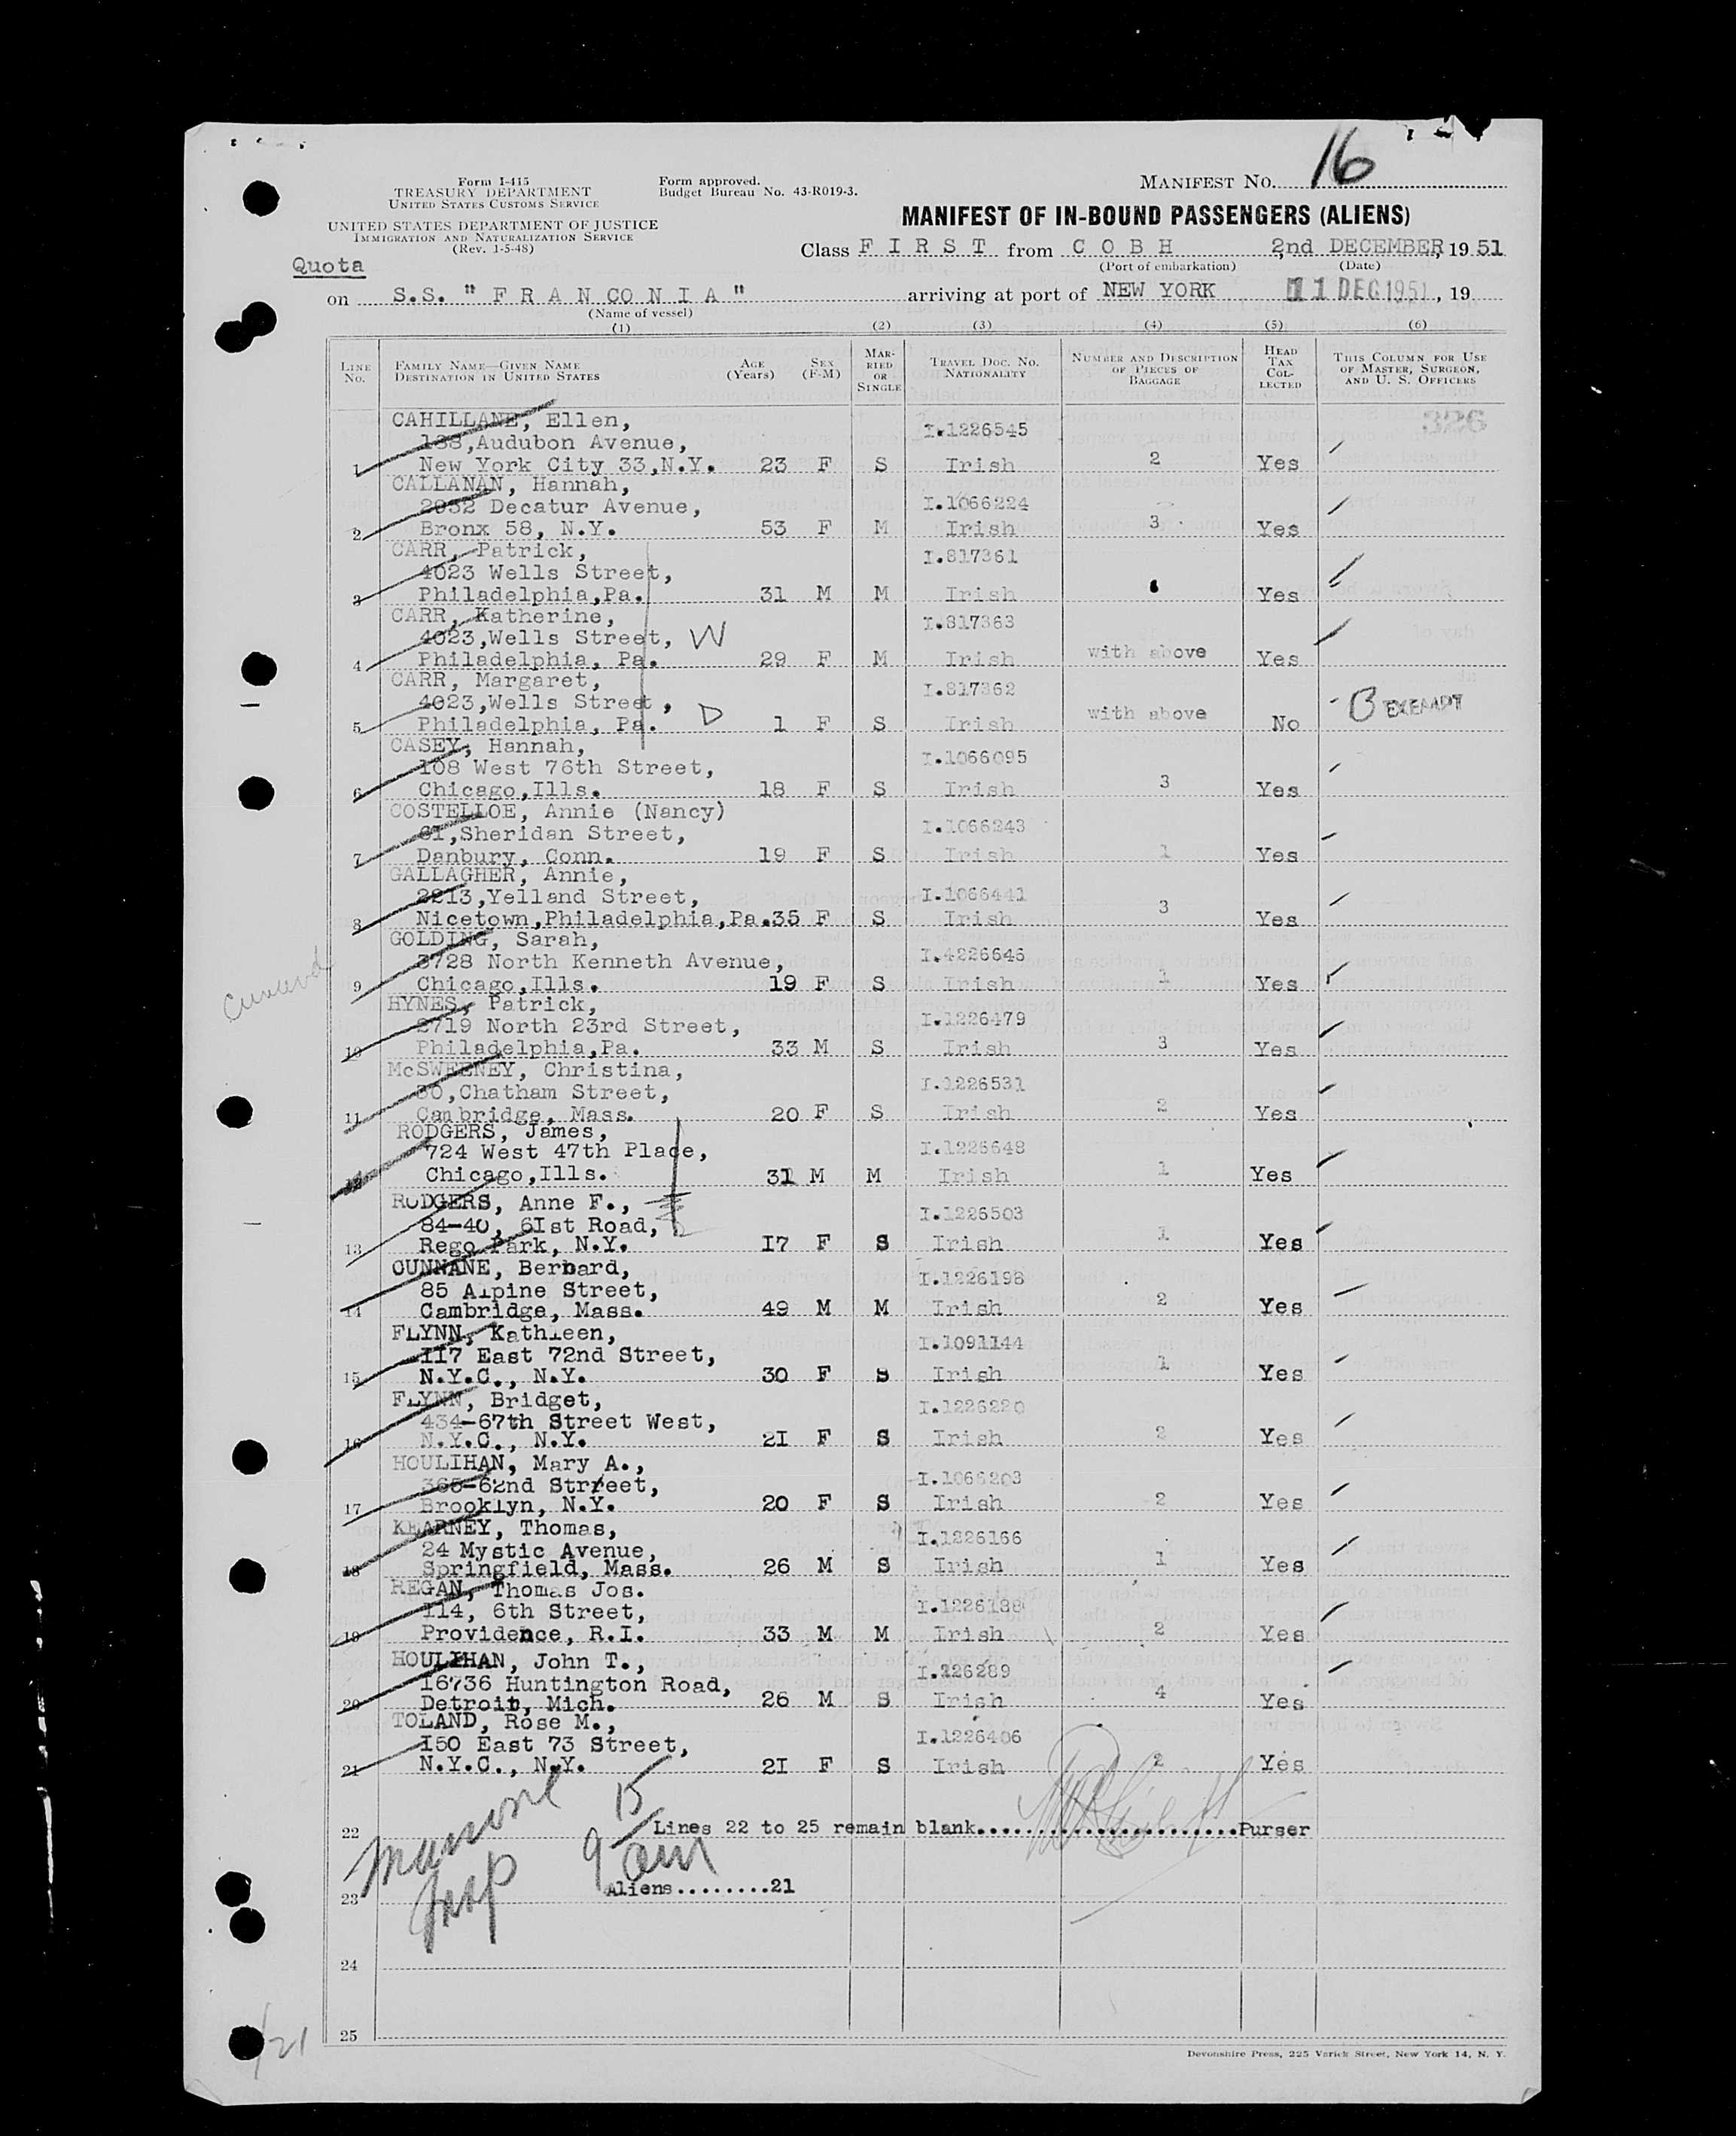 16
Form I-415
TREASURY DEPARTMENT
UNITED STATES CUSTOMS SERVICE
Form approved.
Budget Bureau No. 43-R019-3.
MANIFEST NO.
UNITED STATES DEPARTMENT OF JUSTICE
IMMIGRATION AND NATURALIZATION SERVICE
(Rev. 1-5-48)
MANIFEST OF IN-BOUND PASSENGERS (ALIENS)
Quota
Class F I R S T from C O B H 2nd DECEMBER, 19 51
(Port of embarkation) (Date)
on S.S. " F R A N C O N I A " arriving at port of NEW YORK 11 DEC 1951, 19
(Name of vessel)
(1) (2) (3) (4) (5) (6)
LINE NO. FAMILY NAME—GIVEN NAME DESTINATION IN UNITED STATES AGE (Years) SEX (F-M) MARRIED OR SINGLE TRAVEL DOC. NO. NATIONALITY NUMBER AND DESCRIPTION OF PIECES OF BAGGAGE HEAD TAX COLLECTED THIS COLUMN FOR USE OF MASTER, SURGEON, AND U. S. OFFICERS
326
CAHILLANE, Ellen, I.1226545
138,Audubon Avenue,
1 New York City 33,N.Y. 23 F S Irish 2 Yes
CALLANAN, Hannah, I.1066224
2932 Decatur Avenue,
2 Bronx 58, N.Y. 53 F M Irish 3 Yes
CARR, Patrick, I.817361
4023 Wells Street,
3 Philadelphia,Pa. 31 M M Irish Yes
CARR, Katherine, I.817363
4023,Wells Street, W
4 Philadelphia, Pa. 29 F M Irish with above Yes
CARR, Margaret, I.817362
4023,Wells Street, D
5 Philadelphia, Pa. 1 F S Irish with above No EXEMPT
CASEY, Hannah, I.1066095
108 West 76th Street,
6 Chicago,Ills. 18 F S Irish 3 Yes
COSTELLOE, Annie (Nancy) I.1066243
61,Sheridan Street,
7 Danbury, Conn. 19 F S Irish 1 Yes
GALLAGHER, Annie, I.1066441
2213,Yelland Street,
8 Nicetown,Philadelphia,Pa.35 F S Irish 3 Yes
GOLDING, Sarah, I.4226646
3728 North Kenneth Avenue,
9 Chicago,Ills. 19 F S Irish 1 Yes
HYNES, Patrick, I.1226479
2719 North 23rd Street,
10 Philadelphia,Pa. 33 M S Irish 3 Yes
McSWEENEY, Christina, I.1226531
30,Chatham Street,
11 Cambridge, Mass. 20 F S Irish 2 Yes
RODGERS, James, I.1226648
724 West 47th Place,
12 Chicago,Ills. 31 M M Irish 1 Yes
RODGERS, Anne F., I.1226503
84-40, 6Ist Road,
13 Rego Park, N.Y. I7 F S Irish 1 Yes
CUNNANE, Bernard, I.1226198
85 Alpine Street,
14 Cambridge, Mass. 49 M M Irish 2 Yes
FLYNN, Kathleen, I.1091144
II7 East 72nd Street,
15 N.Y.C., N.Y. 30 F S Irish 1 Yes
FLYNN, Bridget, I.1226220
434-67th Street West,
16 N.Y.C., N.Y. 2I F S Irish 2 Yes
HOULIHAN, Mary A., I.1066203
365-62nd Strreet,
17 Brooklyn, N.Y. 20 F S Irish 2 Yes
KEARNEY, Thomas, I.1226166
24 Mystic Avenue,
18 Springfield, Mass. 26 M S Irish 1 Yes
REGAN, Thomas Jos. I.1226188
II4, 6th Street,
19 Providence, R.I. 33 M M Irish 2 Yes
HOULIHAN, John T., I.226289
I6736 Huntington Road,
20 Detroit, Mich. 26 M S Irish 4 Yes
TOLAND, Rose M., I.1226406
I50 East 73 Street,
21 N.Y.C., N.Y. 2I F S Irish 2 Yes
15
22 Lines 22 to 25 remain blank........................Purser
9 am
Insp
23 Aliens........21
24
25
/21
Devonshire Press, 225 Varick Street, New York 14, N. Y.